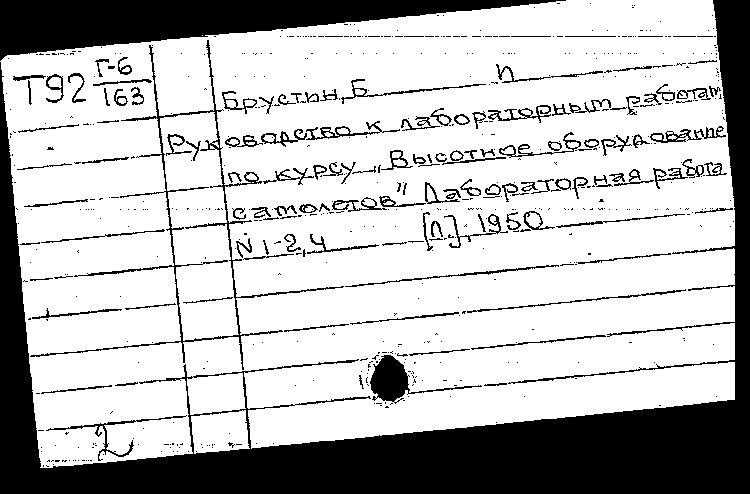 Т92 Г-6/163
Брустин, Б п
Руководство к лабораторным работам
по курсу „Высотное оборудование
самолетов" Лабораторная работа
№ 1-2, 4 [Л.], 1950
2